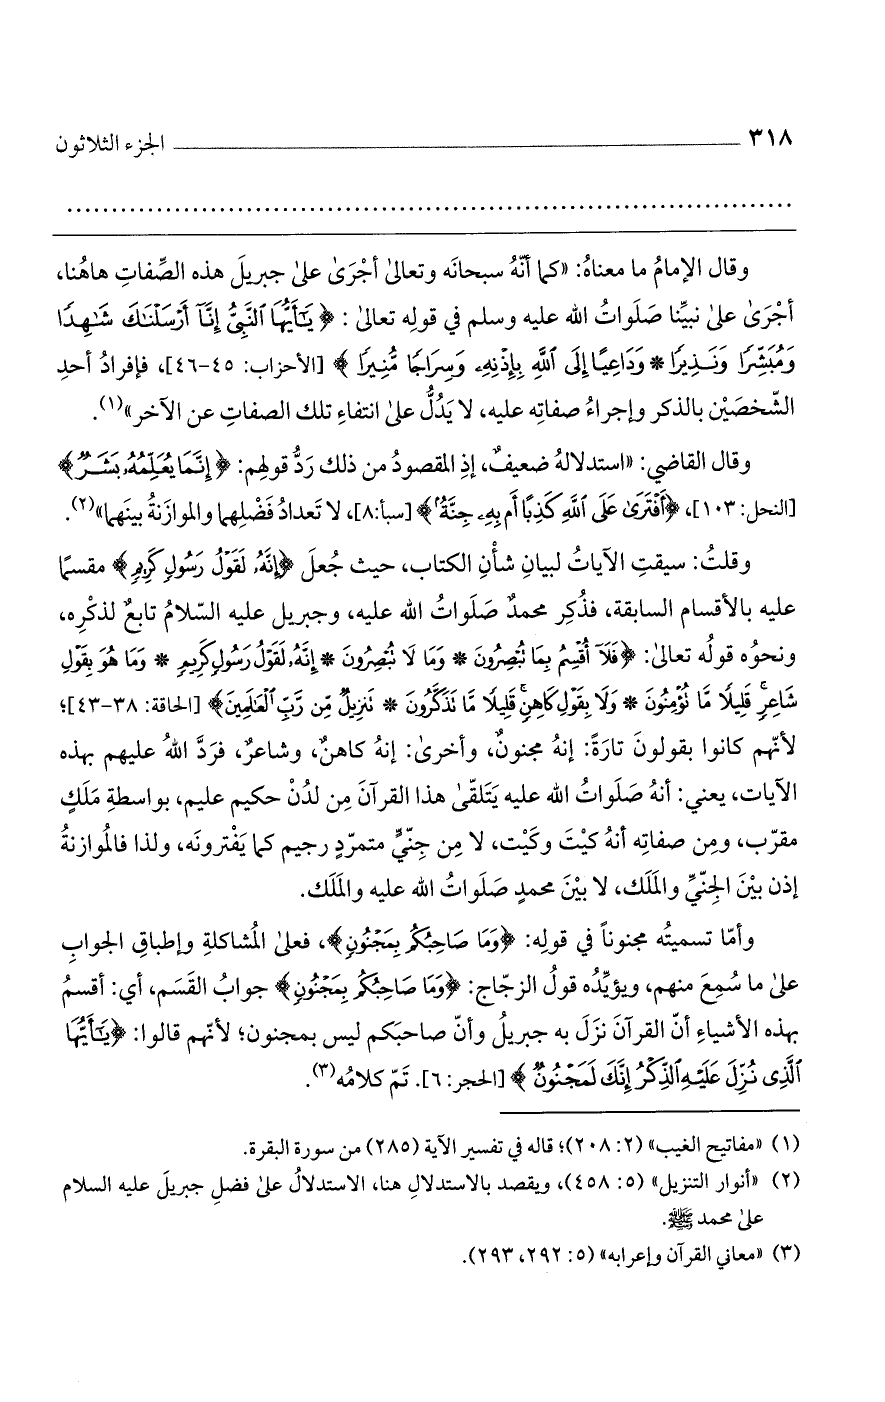 ٣١٨ الجزء الثلاثون
وقال الإمامُ ما معناهُ: «كما أنّهُ سبحانَه وتعالىٰ أجْرَىٰ علىٰ جبريلَ هذه الصِّفاتِ هاهُنا،
أجْرَىٰ علىٰ نبيِّنا صَلَواتُ الله عليه وسلم في قولِه تعالىٰ: ﴿ يَـٰٓأَيُّهَا ٱلنَّبِىُّ إِنَّآ أَرْسَلْنَـٰكَ شَـٰهِدًا
وَمُبَشِّرًا وَنَـذِيرًا * وَدَاعِيًا إِلَى ٱللَّهِ بِإِذْنِهِۦ وَسِرَاجًا مُّنِيرًا ﴾ [الأحزاب: ٤٥-٤٦]، فإفرادُ أحدِ
الشّخصَيْن بالذكر وإجراءُ صفاتِه عليه، لا يَدُلُّ علىٰ انتفاءِ تلك الصفاتِ عن الآخر»(١).
وقال القاضي: «استدلالهُ ضعيفٌ، إذِ المقصودُ من ذلك رَدُّ قولهِم: ﴿ إِنَّمَا يُعَلِّمُهُۥ بَشَـرٌ ﴾
[النحل: ١٠٣]، ﴿أَفْتَرَىٰ عَلَى ٱللَّهِ كَذِبًا أَم بِهِۦ جِنَّةٌۢ ﴾ [سبأ:٨]، لا تَعدادُ فَضْلِهما والموازَنةُ بينَهما»(٢).
وقلتُ: سيقتِ الآياتُ لبيانِ شأْنِ الكتاب، حيث جُعلَ ﴿إِنَّهُۥ لَقَوْلُ رَسُولٍ كَرِيمٍ ﴾ مقسمًا
عليه بالأقسام السابقة، فذُكِر محمدٌ صَلَواتُ الله عليه، وجبريل عليه السّلامُ تابعٌ لذكْرِه،
ونحوُه قولُه تعالىٰ: ﴿فَلَآ أُقْسِمُ بِمَا تُبْصِرُونَ * وَمَا لَا تُبْصِرُونَ * إِنَّهُۥ لَقَوْلُ رَسُولٍ كَرِيمٍ * وَمَا هُوَ بِقَوْلِ
شَاعِرٍ ۚ قَلِيلًا مَّا تُؤْمِنُونَ * وَلَا بِقَوْلِ كَاهِنٍ ۚ قَلِيلًا مَّا تَذَكَّرُونَ * تَنزِيلٌ مِّن رَّبِّ ٱلْعَـٰلَمِينَ﴾ [الحاقة: ٣٨-٤٣]؛
لأنّهم كانوا يقولونَ تارَةً: إنهُ مجنونٌ، وأخرىٰ: إنهُ كاهنٌ، وشاعرٌ، فرَدَّ اللهُ عليهم بهذه
الآيات، يعني: أنهُ صَلَواتُ الله عليه يَتَلقّىٰ هذا القرآنَ مِن لدُنْ حكيم عليم، بواسطةِ مَلَكٍ
مقرّب، ومِن صفاتِه أنهُ كيْتَ وكَيْت، لا مِن جِنّيٍّ متمرّدٍ رجيم كما يَفْترونَه، ولذا فالمُوازنةُ
إذن بيْنَ الجِنّيِّ والمَلَك، لا بيْنَ محمدٍ صَلَواتُ الله عليه والمَلَك.
وأمّا تسميتُه مجنوناً في قولِه: ﴿وَمَا صَاحِبُكُم بِمَجْنُونٍ﴾، فعلىٰ المُشاكلةِ وإطباقِ الجوابِ
علىٰ ما سُمِعَ منهم، ويؤيِّدُه قولُ الزجّاج: ﴿وَمَا صَاحِبُكُم بِمَجْنُونٍ﴾ جوابُ القَسَم، أي: أقسمُ
بهذه الأشياءِ أنّ القرآنَ نزَلَ به جبريلُ وأنّ صاحبَكم ليس بمجنون؛ لأنّهم قالوا: ﴿يَـٰٓأَيُّهَا
ٱلَّذِى نُزِّلَ عَلَيْهِ ٱلذِّكْرُ إِنَّكَ لَمَجْنُونٌ ﴾ [الحجر: ٦]. تَمّ كلامُه(٣).
(١) «مفاتيح الغيب» (٢: ٢٠٨)؛ قاله في تفسير الآية (٢٨٥) من سورة البقرة.
(٢) «أنوار التنزيل» (٥: ٤٥٨)، ويقصد بالاستدلالِ هنا، الاستدلالُ علىٰ فضلِ جبريلَ عليه السلام
علىٰ محمد ﷺ.
(٣) «معاني القرآن وإعرابه» (٥: ٢٩٢، ٢٩٣).